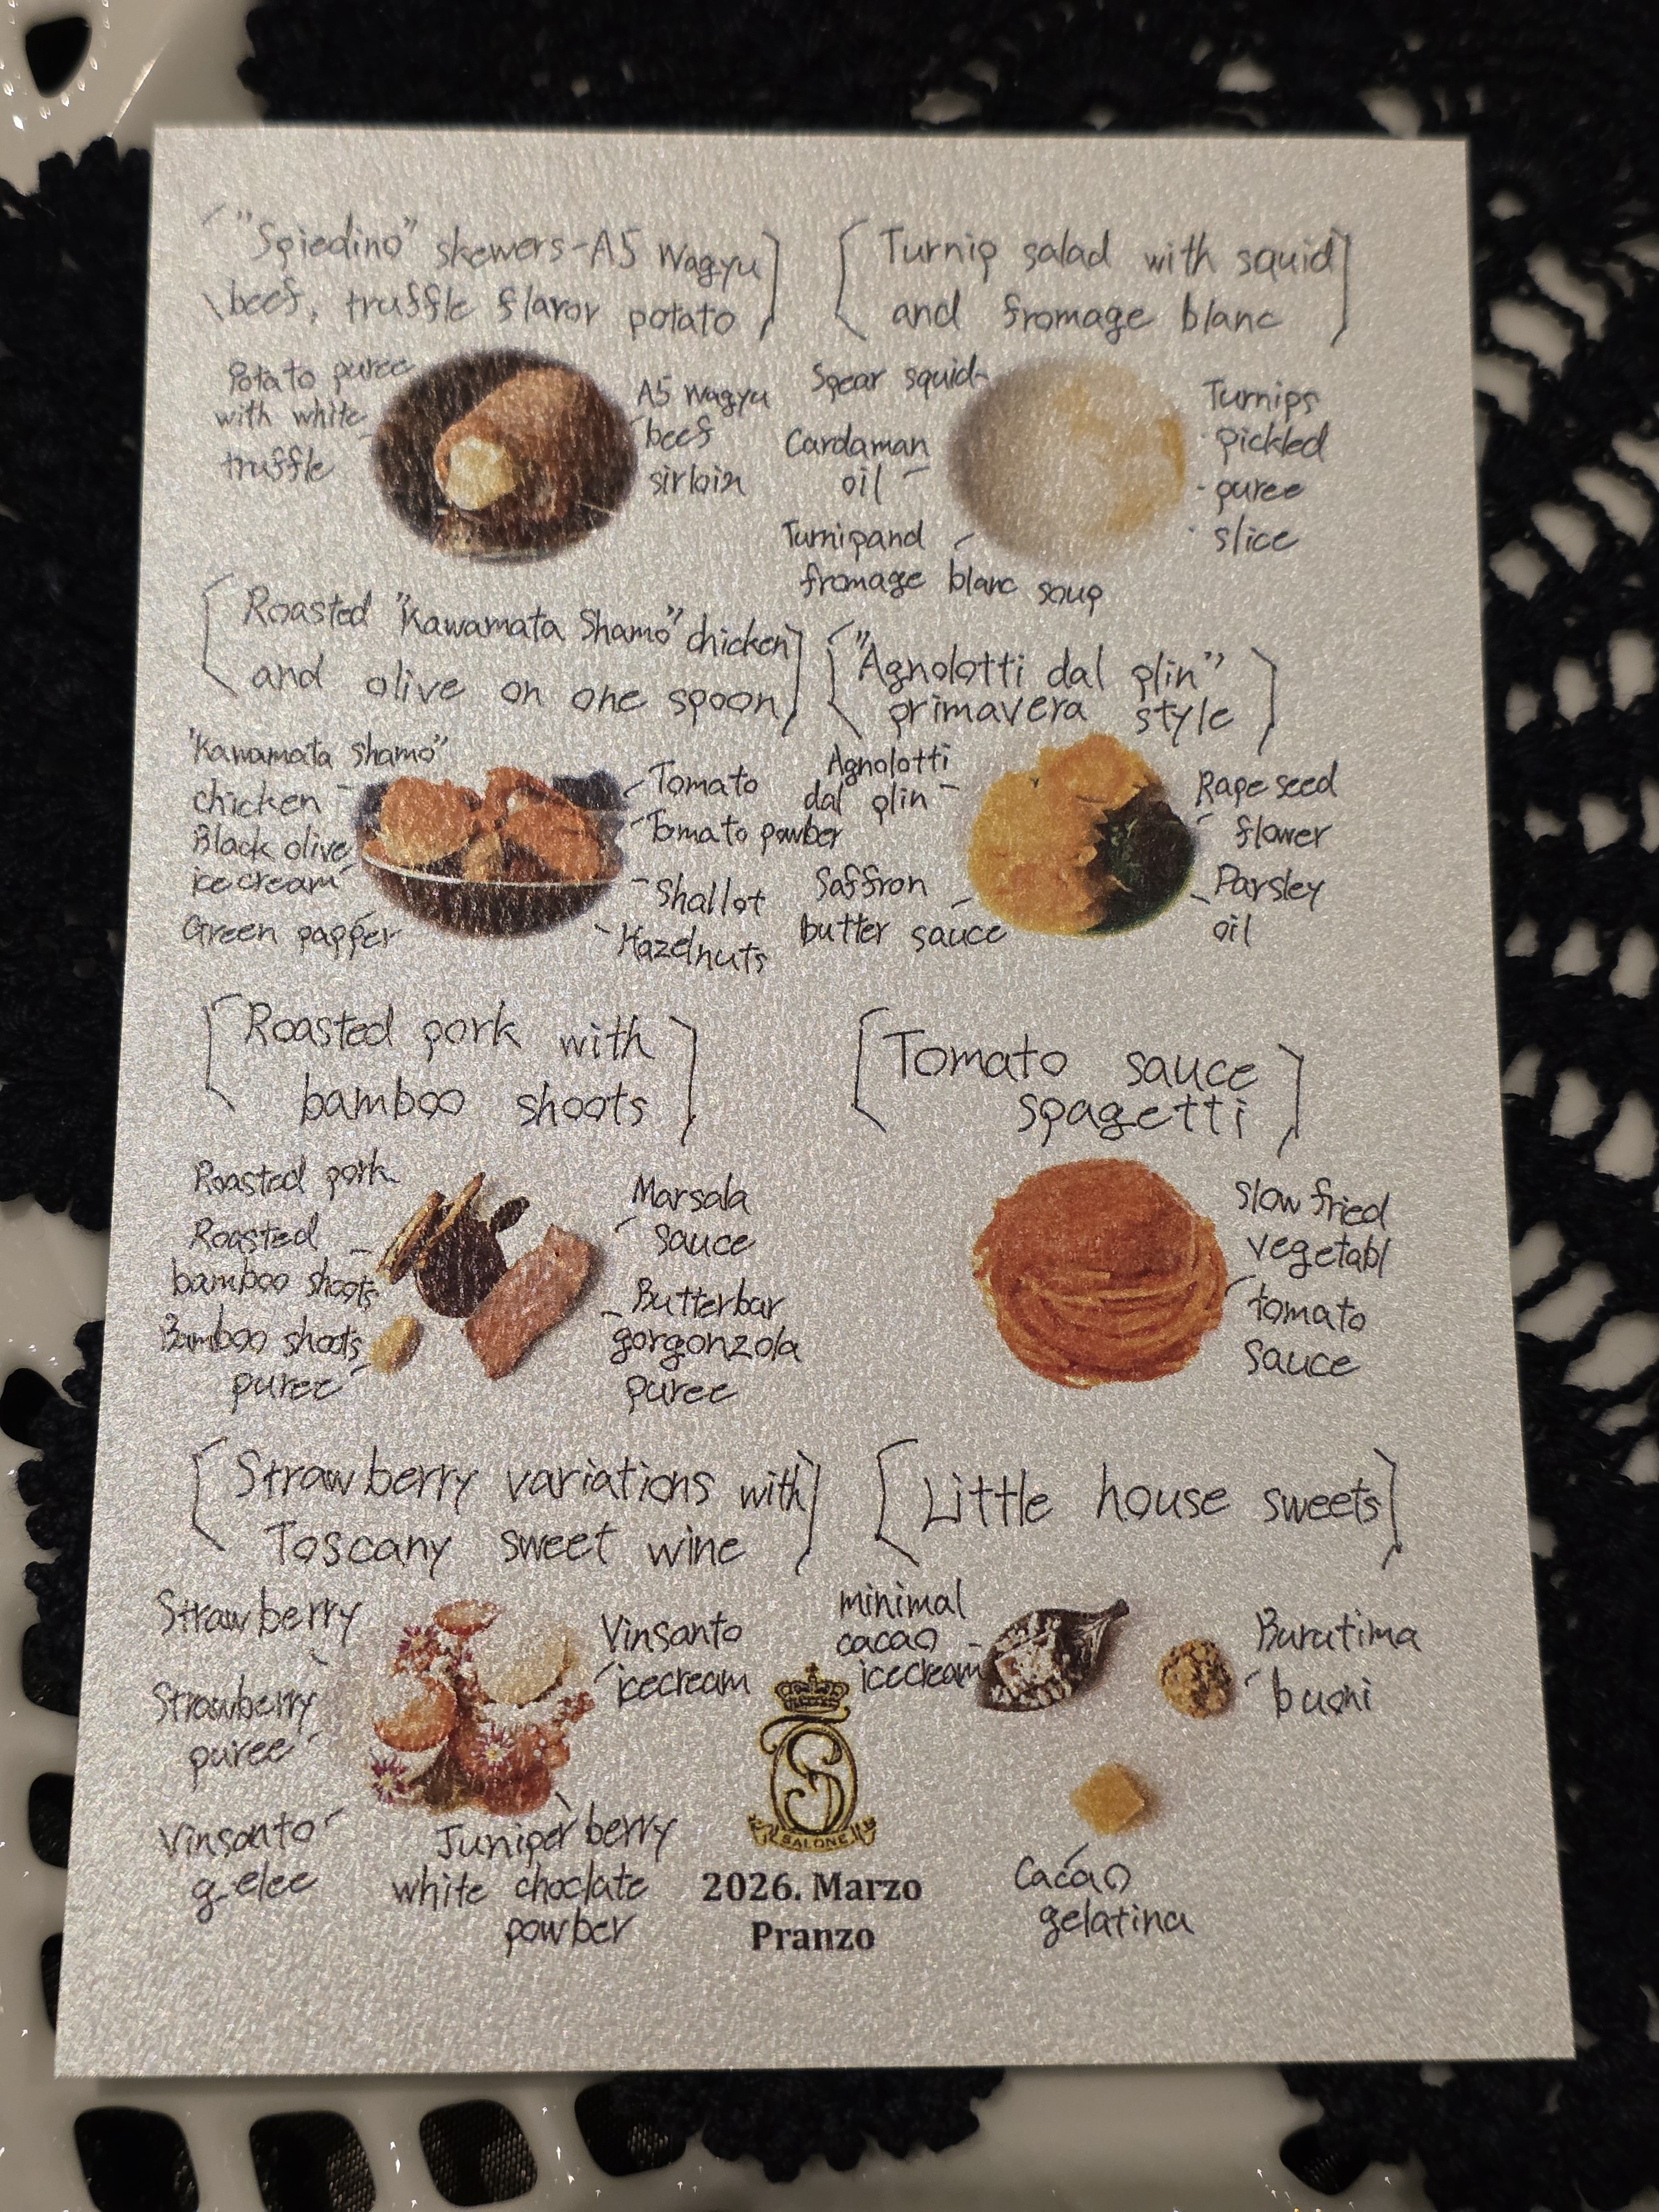 "Spiedino" skewers-A5 Wagyu
beef, truffle flavor potato
Potato puree
with white
truffle
A5 Wagyu
beef
sirloin
Turnip salad with squid
and fromage blanc
Spear squid
Cardaman
oil
Turnipand
fromage blanc soup
Turnips
pickled
puree
slice
Roasted "Kawamata Shamo" chicken
and olive on one spoon
"Kawamata Shamo"
chicken
Black olive
icecream
Green papper
Tomato
Tomato powber
Shallot
Hazelnuts
"Agnolotti dal plin"
primavera style
Agnolotti
dal plin
Saffron
butter sauce
Rape seed
flower
Parsley
oil
Roasted pork with
bamboo shoots
Roasted pork
Roasted
bamboo shoots
Bamboo shoots
puree
Marsala
sauce
Butterbar
gorgonzola
puree
Tomato sauce
spagetti
slow fried
vegetabl
tomato
sauce
Strawberry variations with
Toscany sweet wine
Strawberry
Strawberry
puree
Vinsanto
gelee
Vinsanto
icecream
Juniper berry
white choclate
powber
Little house sweets
minimal
cacao
icecream
Burutima
buoni
Cacao
gelatina
SALONE
2026. Marzo
Pranzo